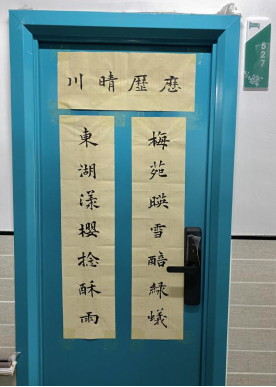 川晴歷歷
梅苑暎雪醅綠蟻
東湖漾櫻捻酥雨
527